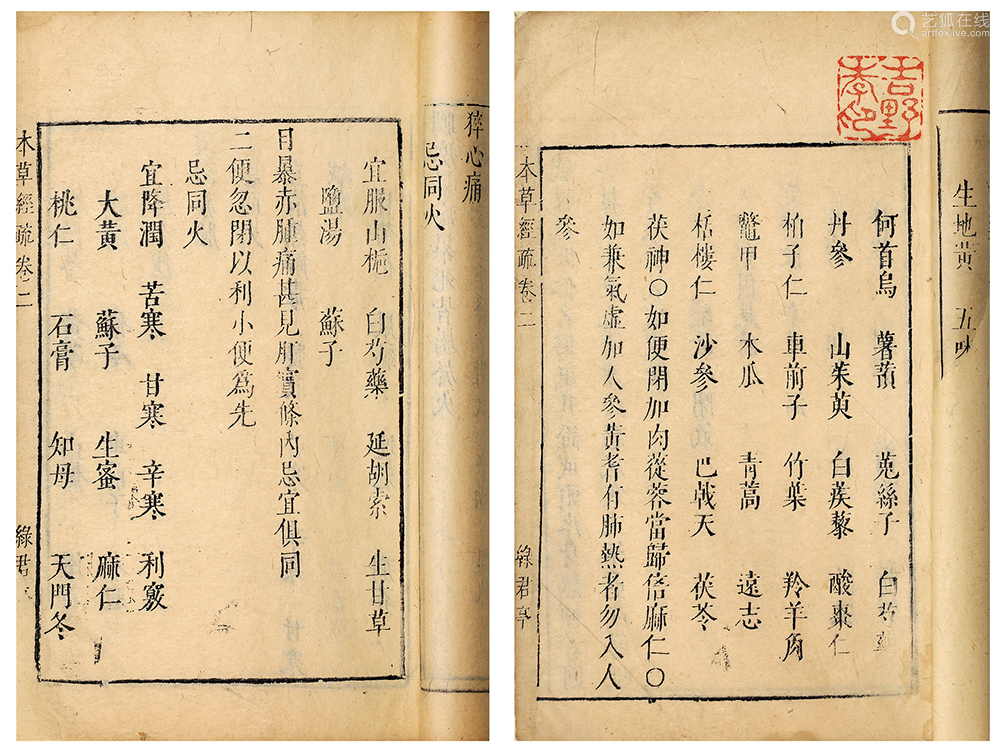 猝心痛
忌同火
宜服山梔 白芍藥 延胡索 生甘草
鹽湯 蘇子
目暴赤腫痛甚見肝實條內忌宜俱同
二便忽閉以利小便爲先
忌同火
宜降潤 苦寒 甘寒 辛寒 利竅
大黃 蘇子 生蜜 麻仁
桃仁 石膏 知母 天門冬
本草經疏卷二
綠君
艺狐在线
artfoxlive.com
吉野
生地黃 五味
何首烏 薯蕷 菟絲子 白芍
丹參 山茱萸 白蒺藜 酸棗仁
柏子仁 車前子 竹葉 羚羊角
鼈甲 木瓜 青蒿 遠志
栝樓仁 沙參 巴戟天 茯苓
茯神○如便閉加肉蓯蓉當歸倍麻仁○
如兼氣虛加人參黃耆有肺熱者勿入人
參
本草經疏卷二
綠君亭